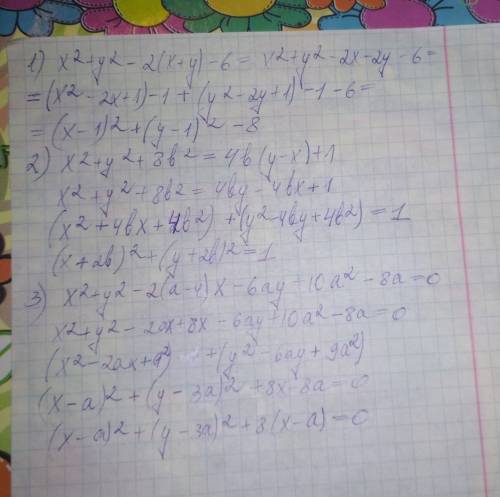 1) x²+y²-2(x+y)-6= x²+y²-2x-2y-6=
=(x²-2x+1)-1+(y²-2y+1)-1-6=
=(x-1)²+(y-1)²-8
2) x²+y²+8b²=4b(y-x)+1
x²+y²+8b²=4by-4bx+1
(x²+4bx+4b²)+(y²-4by+4b²)=1
(x+2b)²+(y+2b)²=1
3) x²+y²-2(a-4)x-6ay+10a²-8a=0
x²+y²-2ax+8x-6ay+10a²-8a=0
(x²-2ax+a²)+(y²-6ay+9a²)
(x-a)²+(y-3a)²+8x-8a=0
(x-a)²+(y-3a)²+8(x-a)=0